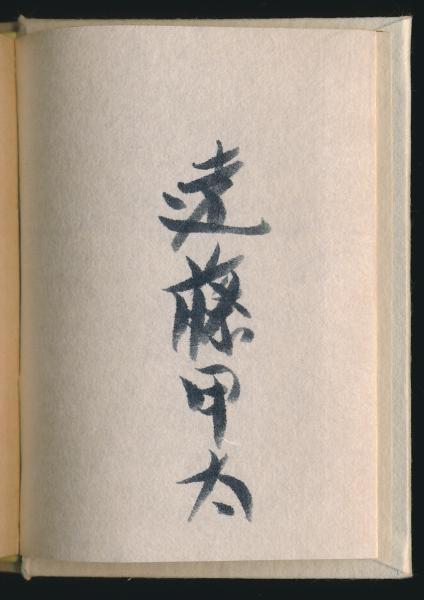 遠藤甲太